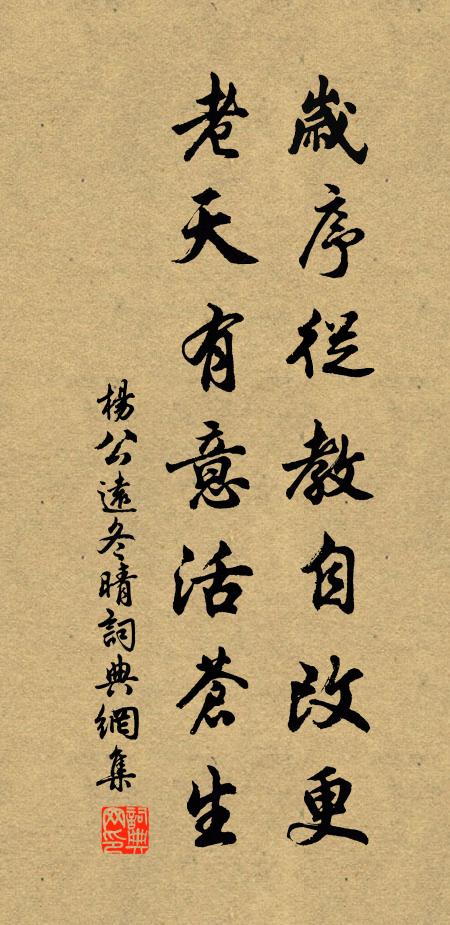 歲序從教自改更
老天有意活蒼生
楊公遠冬晴詞典網集
詞典网印